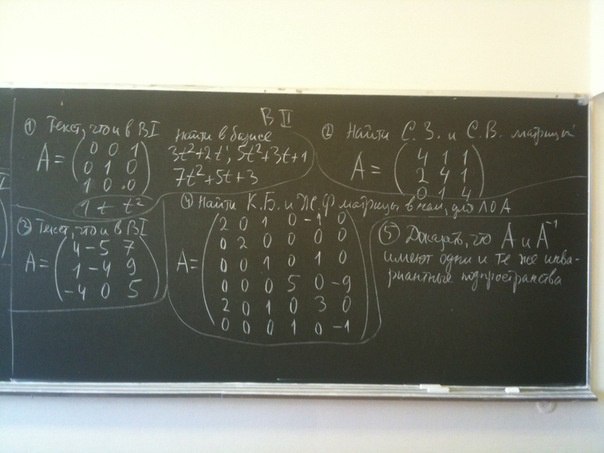 В II
① Текст, что и в В I
A = (0 0 1
0 1 0
1 0 0)
1 t t²
Найти в базисе
3t²+2t; 5t²+3t+1
7t²+5t+3
② Найти С.З. и С.В. матрицы
A = (4 1 1
2 4 1
0 1 4)
③ Текст, что и в В I
A = (4 -5 7
1 -4 9
-4 0 5)
④ Найти К.Б. и Ж.Ф матрицы в нем, для ЛО A
A = (2 0 1 0 -1 0
0 2 0 0 0 0
0 0 1 0 1 0
0 0 0 5 0 -9
2 0 1 0 3 0
0 0 0 1 0 -1)
⑤ Доказать, что A и A⁻¹
имеют одни и те же инва-
риантные подпространства